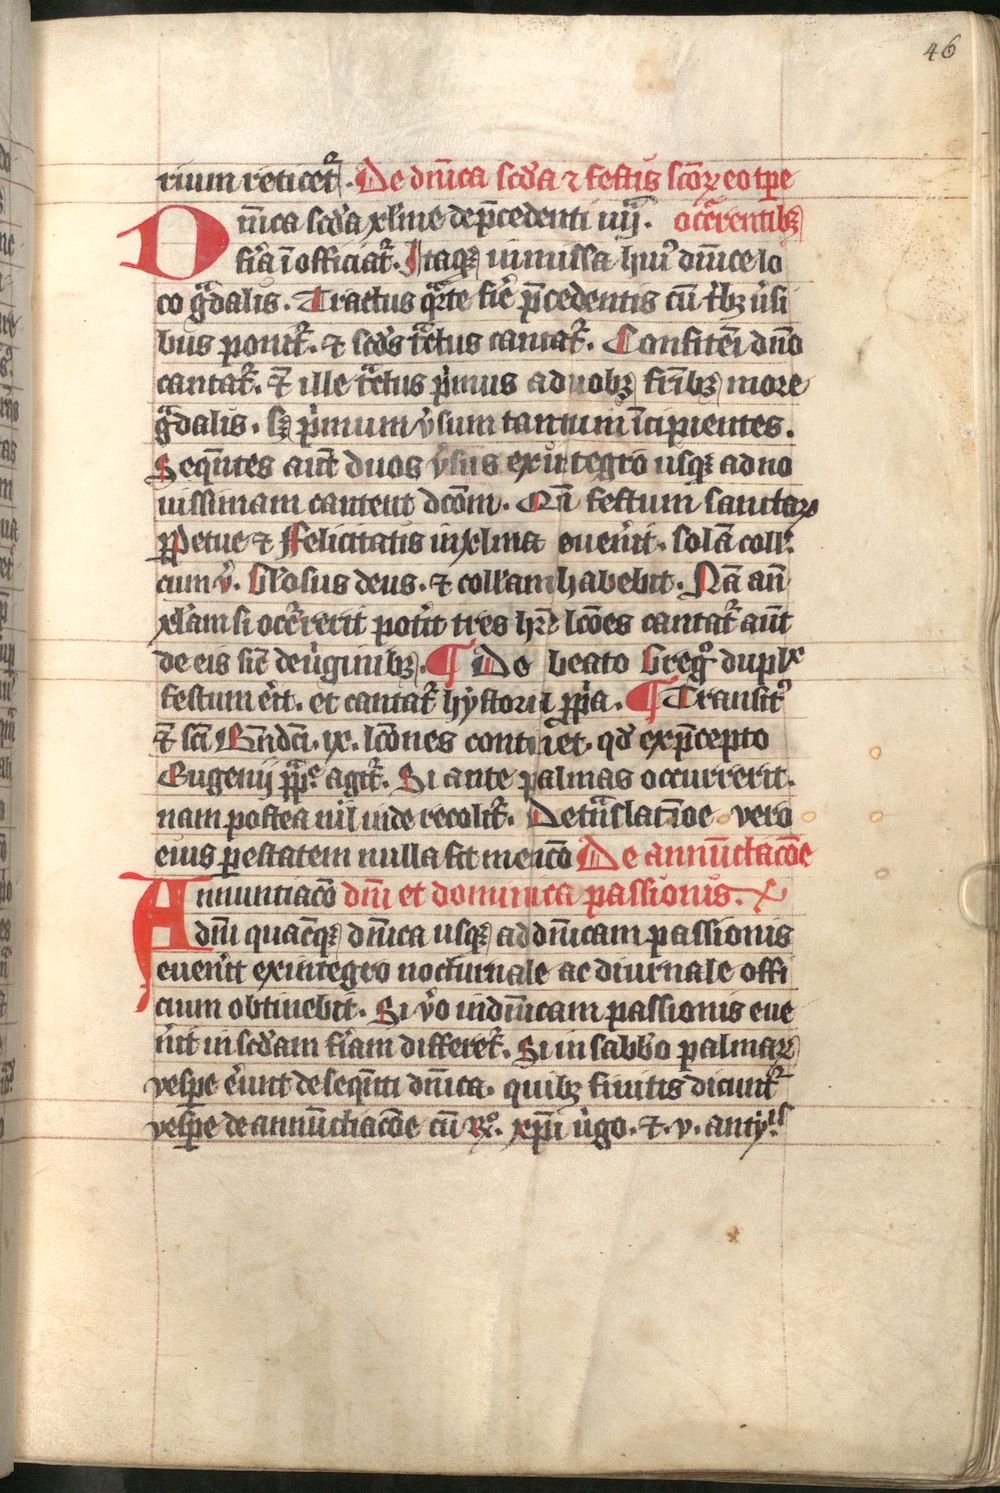 46
rium reticet᷑. De dn̄ica scd̓a ⁊ festis sc̄oꝝ eo tp̄e
Dn̄ica scd̓a xl̓me de p̄cedenti iiij. occ̄rentibꝫ
fīa īofficiat᷑. Itaqꝫ in missa huiꝰ dn̄ice lo
co gͣdalis. Tractus qͣrte fīe p̄cedentis cū tͥbꝫ v̓si
bus ponit᷑. ⁊ scd̓s tͣctus cantat᷑. Confitem̄ dn̄o
cantat᷑. ⁊ ille tͣctus pͥmus a duobꝫ fr̄ibꝫ more
gͣdalis. sꝫ pͥmum v̓sum tantum īcipientes.
Seqn̄tes aūt duos v̓sus ex integro usqꝫ ad no
uissimam cantent dc̄om. Nā festum sanctaꝝ
ꝑpetue ⁊ Felicitatis in xl̓ma euen̓it. solā coll̓.
cum v̓. Gl̓osus deus. ⁊ coll̓am habebit. Nā an̄
xl̓am si occ̓rerit pot̓it tres hr̄e lc̄oes cantat᷑ aūt
de eis sic̄ de v̓ginibꝫ. ¶ De beato Gregͦ. duplˣ
festum er̓it. et cantat᷑ hystoria ꝓpͥa. ¶ Transitꝰ
⁊ sc̄i Bn̄dc̄i. ix. lc̄ones continet. qd̓ ex p̄cepto
Eugenij pp̄e agit᷑. Si ante palmas occurrerit.
nam postea nil inde recolit᷑. De tͣnslac̄ioe vero
eius ꝑ estatem nulla fit men̄co De annūctiac̄oe
Annuntiac̄o dn̄i et dominica passionis.
a dn̄i quacūqꝫ dn̄ica usqꝫ ad dn̄icam passionis
euen̓it ex integro nocturnale ac diurnale offi
cium obtinebit. Si v̓o in dn̄icam passionis eue
n̓it in scd̓am fīam differet᷑. Si in sabb̓o palmaꝝ
vesp̄e er̓unt de seqn̄ti dn̄ica. quibꝫ finitis dicunt᷑
vesp̄e de annūctiac̄oe cū ℟ᷣ. xp̄i v̓go. ⁊. v. anty